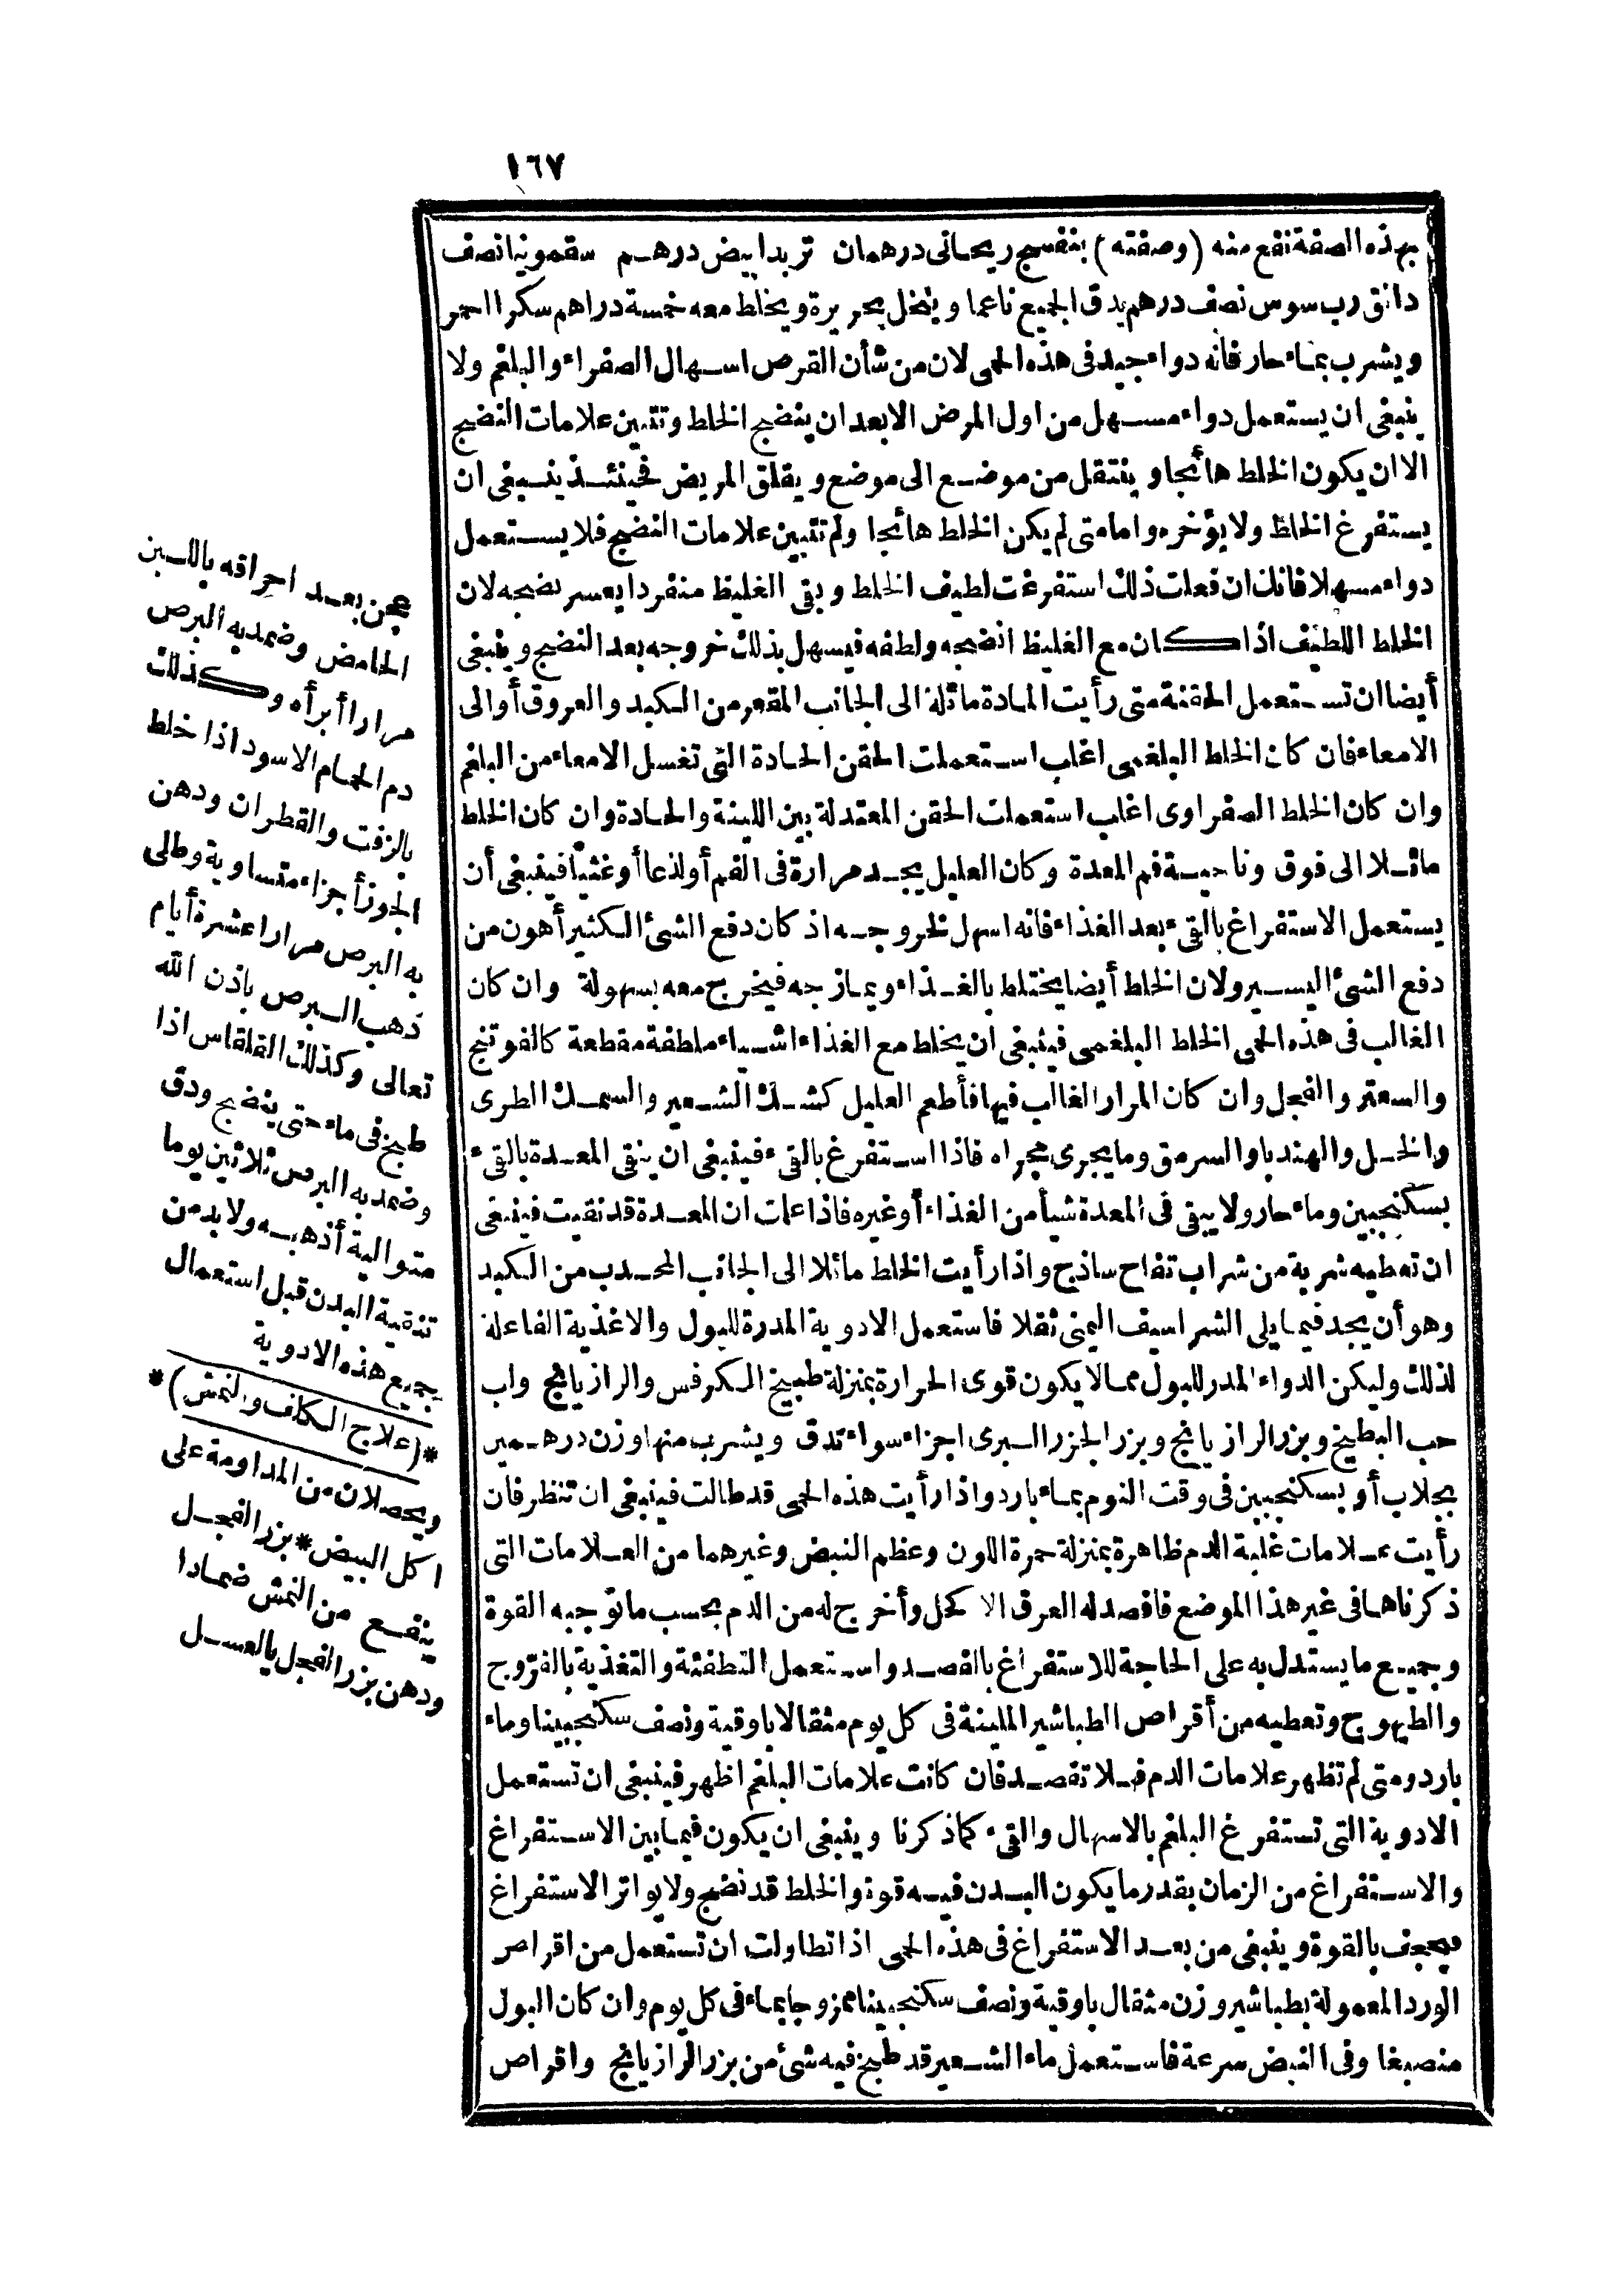 ١٦٧
بهذه الصفة نفع منه (وصفته) بنفسج ريحانى درهمان تربد ابيض درهم سقمونيا نصف
دانق رب سوس نصف درهم يدق الجميع ناعما وينخل بحريرة ويخلط معه خمسة دراهم سكرا احمر
ويشرب بماء حار فانه دواء جيد فى هذه الحمى لان من شأن القرص اسهال الصفراء والبلغم ولا
ينبغى ان يستعمل دواء مسهل من اول المرض الا بعد ان ينضج الخلط وتتبين علامات النضج
الا ان يكون الخلط هائجا وينتقل من موضع الى موضع ويقلق المريض فحينئذ ينبغى ان
يستفرغ الخلط ولا يؤخره واما متى لم يكن الخلط هائجا ولم تتبين علامات النضج فلا يستعمل
دواء مسهلا فانك ان فعلت ذلك استفرغت لطيف الخلط وبقى الغليظ منفردا يعسر نضجه لان
الخلط اللطيف اذا كان مع الغليظ انضجه ولطفه فيسهل بذلك خروجه بعد النضج وينبغى
أيضا ان تستعمل الحقنة متى رأيت المادة مائلة الى الجانب المقعر من الكبد والعروق أو الى
الامعاء فان كان الخلط البلغمى اغلب استعملت الحقن الحادة التى تغسل الامعاء من البلغم
وان كان الخلط الصفراوى اغلب استعملت الحقن المعتدلة بين اللينة والحادة وان كان الخلط
مائلا الى فوق وناحية فم المعدة وكان العليل يجد مرارة فى الفم أو لذعا أو غثيا فينبغى أن
يستعمل الاستفراغ بالقىء بعد الغذاء فانه اسهل لخروجه اذ كان دفع الشئ الكثير أهون من
دفع الشئ اليسير ولان الخلط أيضا يختلط بالغذاء ويمازجه فيخرج معه بسهولة وان كان
الغالب فى هذه الحمى الخلط البلغمى فينبغى ان يخلط مع الغذاء اشياء ملطفة مقطعة كالفوتنج
والسعتر والفجل وان كان المرار الغالب فيها فأطعم العليل كشك الشعير والسمك الطرى
والخل والهندبا والسرمق وما يجرى مجراه فاذا استفرغ بالقىء فينبغى ان ينقى المعدة بالقىء
بسكنجبين وماء حار ولا يبقى فى المعدة شيأ من الغذاء أو غيره فاذا علمت ان المعدة قد نقيت فينبغى
ان تعطيه شربة من شراب تفاح ساذج واذا رأيت الخلط مائلا الى الجانب المحدب من الكبد
وهو أن يجد فيما يلى الشراسيف اليمنى ثقلا فاستعمل الادوية المدرة للبول والاغذية الفاعلة
لذلك وليكن الدواء المدر للبول مما لا يكون قوى الحرارة بمنزلة طبيخ الكرفس والرازيانج واب
حب البطيخ وبزر الرازيانج وبزر الجزر البرى اجزاء سواء تدق ويشرب منها وزن درهمين
بجلاب أو بسكنجبين فى وقت النوم بماء بارد واذا رأيت هذه الحمى قد طالت فينبغى ان تنظر فان
رأيت علامات غلبة الدم ظاهرة بمنزلة حمرة اللون وعظم النبض وغيرهما من العلامات التى
ذكرناها فى غير هذا الموضع فافصد له العرق الاكحل وأخرج له من الدم بحسب ما توجبه القوة
وجميع ما يستدل به على الحاجة للاستفراغ بالفصد واستعمل التطفئة والتغذية بالفروج
والطيهوج وتعطيه من أقراص الطباشير الملينة فى كل يوم مثقالا باوقية ونصف سكنجبينا وماء
بارد ومتى لم تظهر علامات الدم فلا تفصد فان كانت علامات البلغم اظهر فينبغى ان تستعمل
الادوية التى تستفرغ البلغم بالاسهال والقىء كما ذكرنا وينبغى ان يكون فيما بين الاستفراغ
والاستفراغ من الزمان بقدر ما يكون البدن فيه قوة والخلط قد نضج ولا يواتر الاستفراغ
فيجحف بالقوة وينبغى من بعد الاستفراغ فى هذه الحمى اذا تطاولت ان تستعمل من اقراص
الورد المعمولة بطباشير وزن مثقال باوقية ونصف سكنجبينا ممزوجا بماء فى كل يوم وان كان البول
منصبغا وفى النبض سرعة فاستعمل ماء الشعير قد طبخ فيه شئ من بزر الرازيانج واقراص
عجن بعد احراقه باللبن
الحامض وضمد به البرص
مرارا أبرأه وكذلك
دم الحمام الاسود اذا خلط
بالزفت والقطران ودهن
الجوز أجزاء متساوية وطلى
به البرص مرارا عشرة أيام
ذهب البرص باذن الله
تعالى وكذلك القلقاس اذا
طبخ فى ماء حتى ينضج ودق
وضمد به البرص ثلاثين يوما
متوالية أذهبه ولا بد من
تنقية البدن قبل استعمال
جميع هذه الادوية
*(علاج الكلف والنمش)*
ويحصلان من المداومة على
اكل البيض * بزر الفجل
ينفع من النمش ضمادا
ودهن بزر الفجل بالعسل